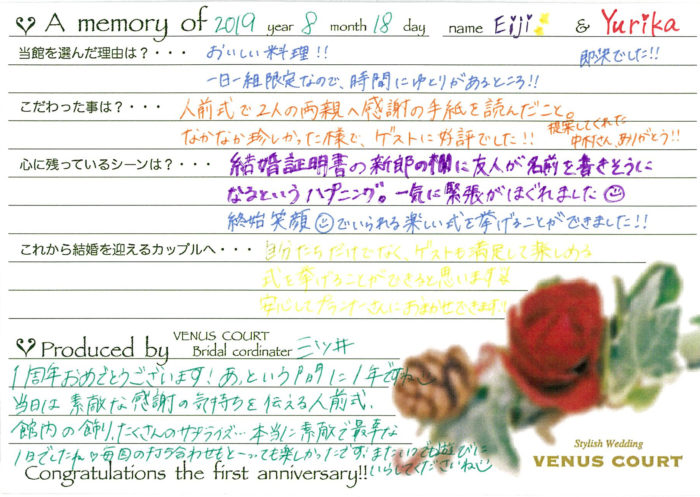 A memory of 2019 year 8 month 18 day name Eiji & Yurika
当館を選んだ理由は？・・・ おいしい料理!! 即決でした!!
一日一組限定なので、時間にゆとりがあるところ!!
こだわった事は？・・・ 人前式で2人の両親へ感謝の手紙を読んだこと。
なかなか珍しかった様で、ゲストに好評でした!! 提案してくれた
中村さん、ありがとう!!
心に残っているシーンは？・・・ 結婚証明書の新郎の欄に友人が名前を書きそうに
なるというハプニング。一気に緊張がほぐれました
終始笑顔でいられる楽しい式を挙げることができました!!
これから結婚を迎えるカップルへ・・・ 自分たちだけでなく、ゲストも満足して楽しめる
式を挙げることができると思います
安心してプランナーさんにおまかせできます!
Produced by VENUS COURT
Bridal cordinater 三ツ井
1周年おめでとうございます!あっという間に1年ですね
当日は素敵な感謝の気持ちを伝える人前式、
館内の飾り、たくさんのサプライズ…本当に素敵で最幸な
1日でしたね♡毎回の打ち合わせもと〜っても楽しかったです。またいつでも遊びに
いらしてくださいね
Congratulations the first anniversary!!
Stylish Wedding
VENUS COURT